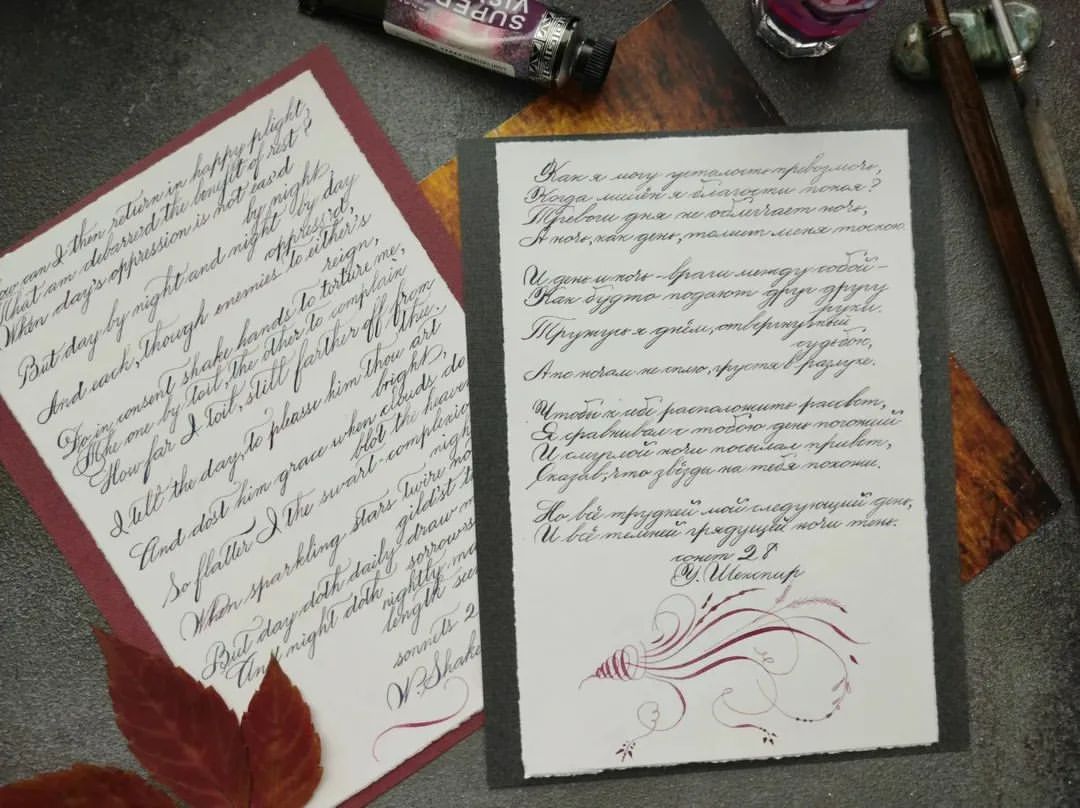 How can I then return in happy plight,
That am debarred the benefit of rest?
When day's oppression is not eas'd
by night,
But day by night and night by day
oppress'd,
And each, though enemies to either's
reign,
Do in consent shake hands to torture me,
The one by toil, the other to complain
How far I toil, still farther off from
thee.
I tell the day, to please him thou art
bright,
And dost him grace when clouds do
blot the heaven
So flatter I the swart-complexio
night
When sparkling stars twire no
gild'st t
But day doth daily draw m
And night doth sorrows
nightly ma
length see
sonnets 2
W. Shake
Как я могу усталость превозмочь,
Когда лишён я благости покоя?
Тревоги дня не облегчает ночь,
А ночь, как день, томит меня тоскою.
И день и ночь - враги между собой -
Как будто подают друг другу
руки.
Тружусь я днём, отвергнутый
судьбою,
А по ночам не сплю, грустя в разлуке.
Чтобы к себе расположить рассвет,
Я сравнивал с тобою день погожий
И смуглой ночи посылал привет,
Сказав, что звёзды на тебя похожи.
Но всё трудней мой следующий день,
И всё темней грядущей ночи тень.
сонет 28
У. Шекспир
SUPER
VIS